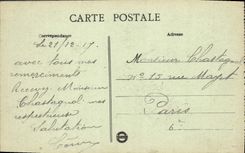 CARTE POSTALE
Correspondance
Adresse
le 21/12-17.
avec tous mes
remerciements
Recevez, Monsieur
Chastagnol mes
respectueuse
Salutation
Monsieur Chastagnol
No 15 rue Mayet
Paris
6e